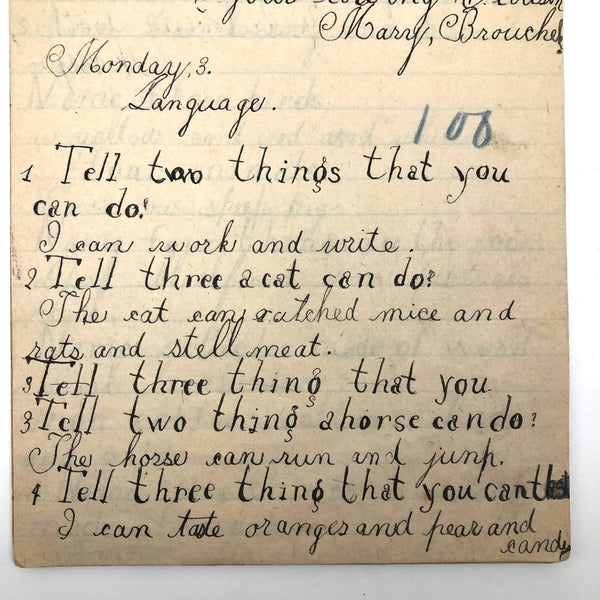 Mary, Brouchel
Monday, 3.
Language.
100
1 Tell two things that you
can do?
I can work and write.
2 Tell three a cat can do?
The cat can catched mice and
rats and stell meat.
3 Tell three thing that you
3 Tell two thing a horse can do?
The horse can run and junp.
4 Tell three thing that you can
I can taste oranges and pear and
candy